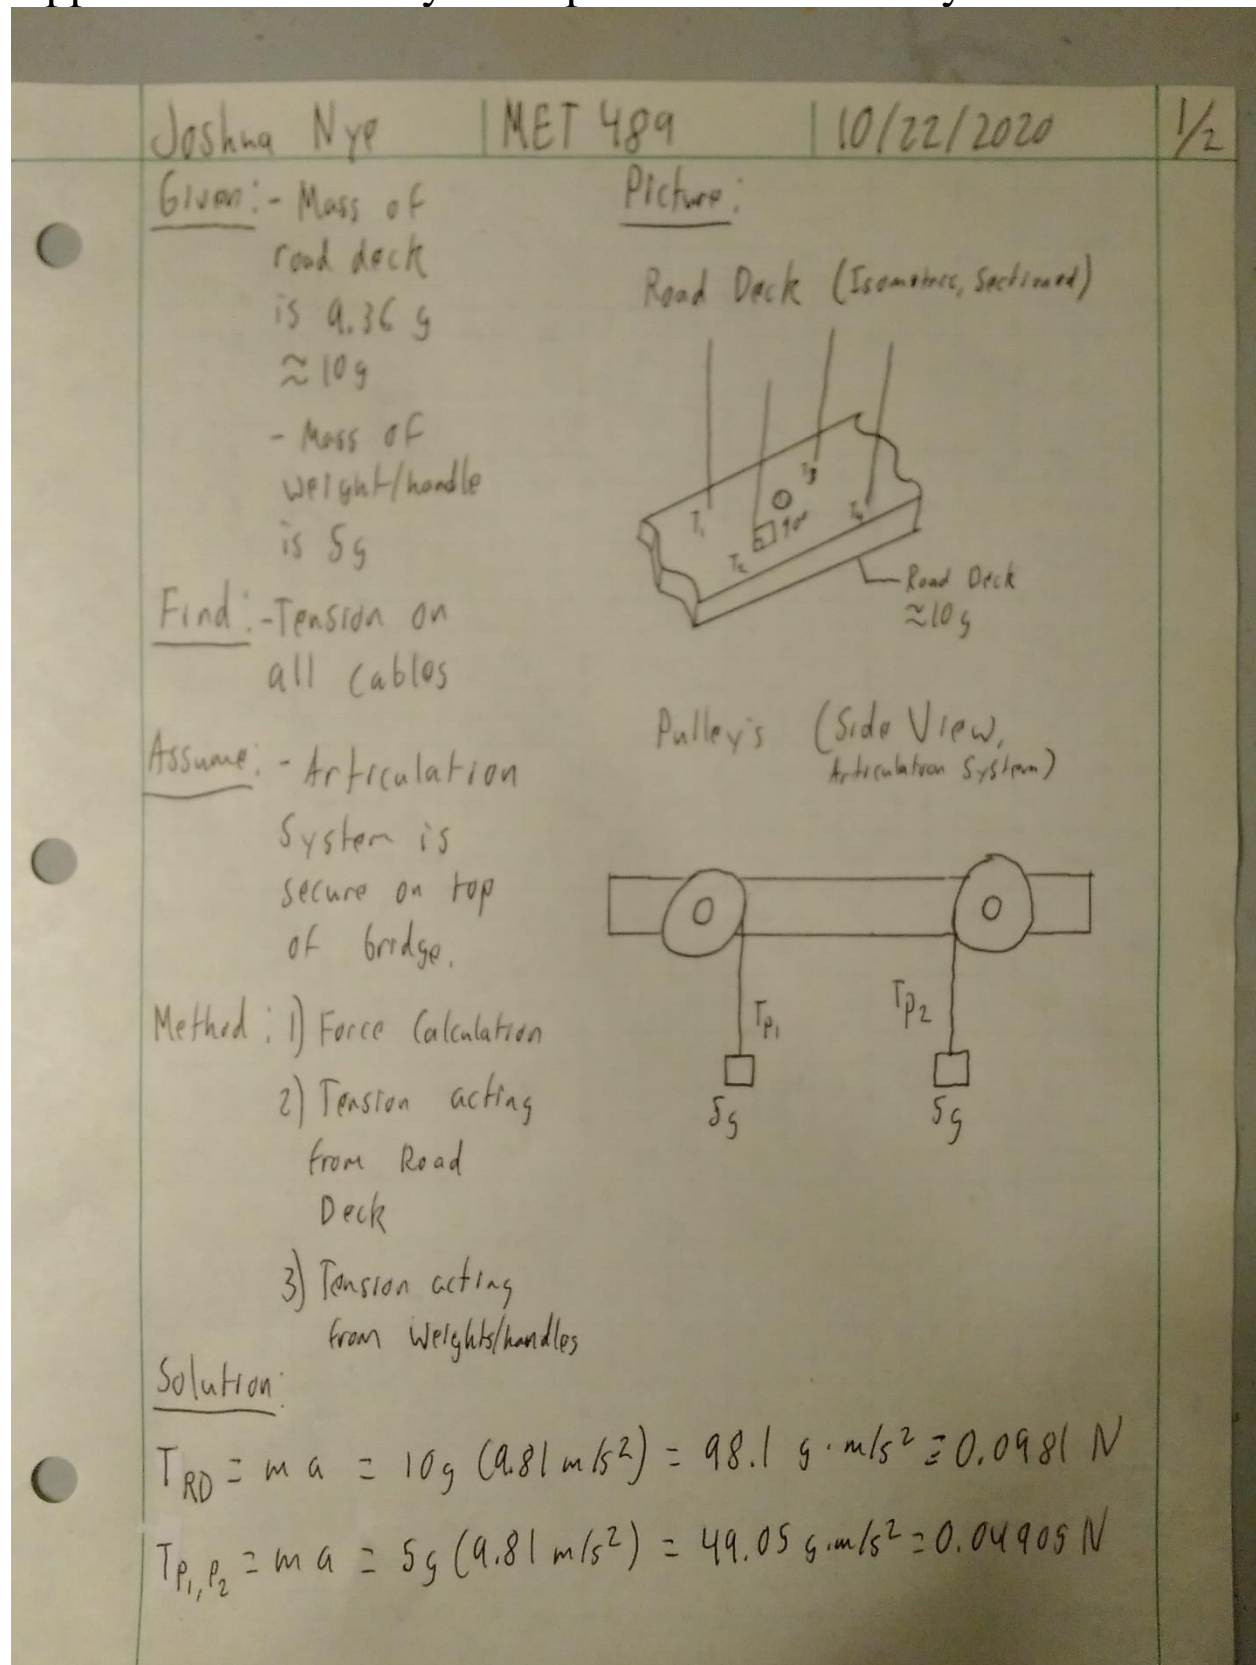 Joshua Nye | MET 489 | 10/22/2020 1/2
Given: - Mass of
road deck
is 9.36 g
≈ 10g
- Mass of
weight/handle
is 5g
Find: - Tension on
all cables
Assume: - Articulation
System is
secure on top
of bridge.
Method: 1) Force Calculation
2) Tension acting
from Road
Deck
3) Tension acting
from weights/handles
Picture:
Road Deck (Isometric, Sectioned)
T1
T2
T3
T4
90°
Road Deck
≈10g
Pulley's (Side View,
Articulation System)
Tp1
Tp2
5g
5g
Solution:
T_RD = ma = 10g (9.81 m/s²) = 98.1 g·m/s² = 0.0981 N
T_P1,P2 = ma = 5g (9.81 m/s²) = 49.05 g·m/s² = 0.04905 N